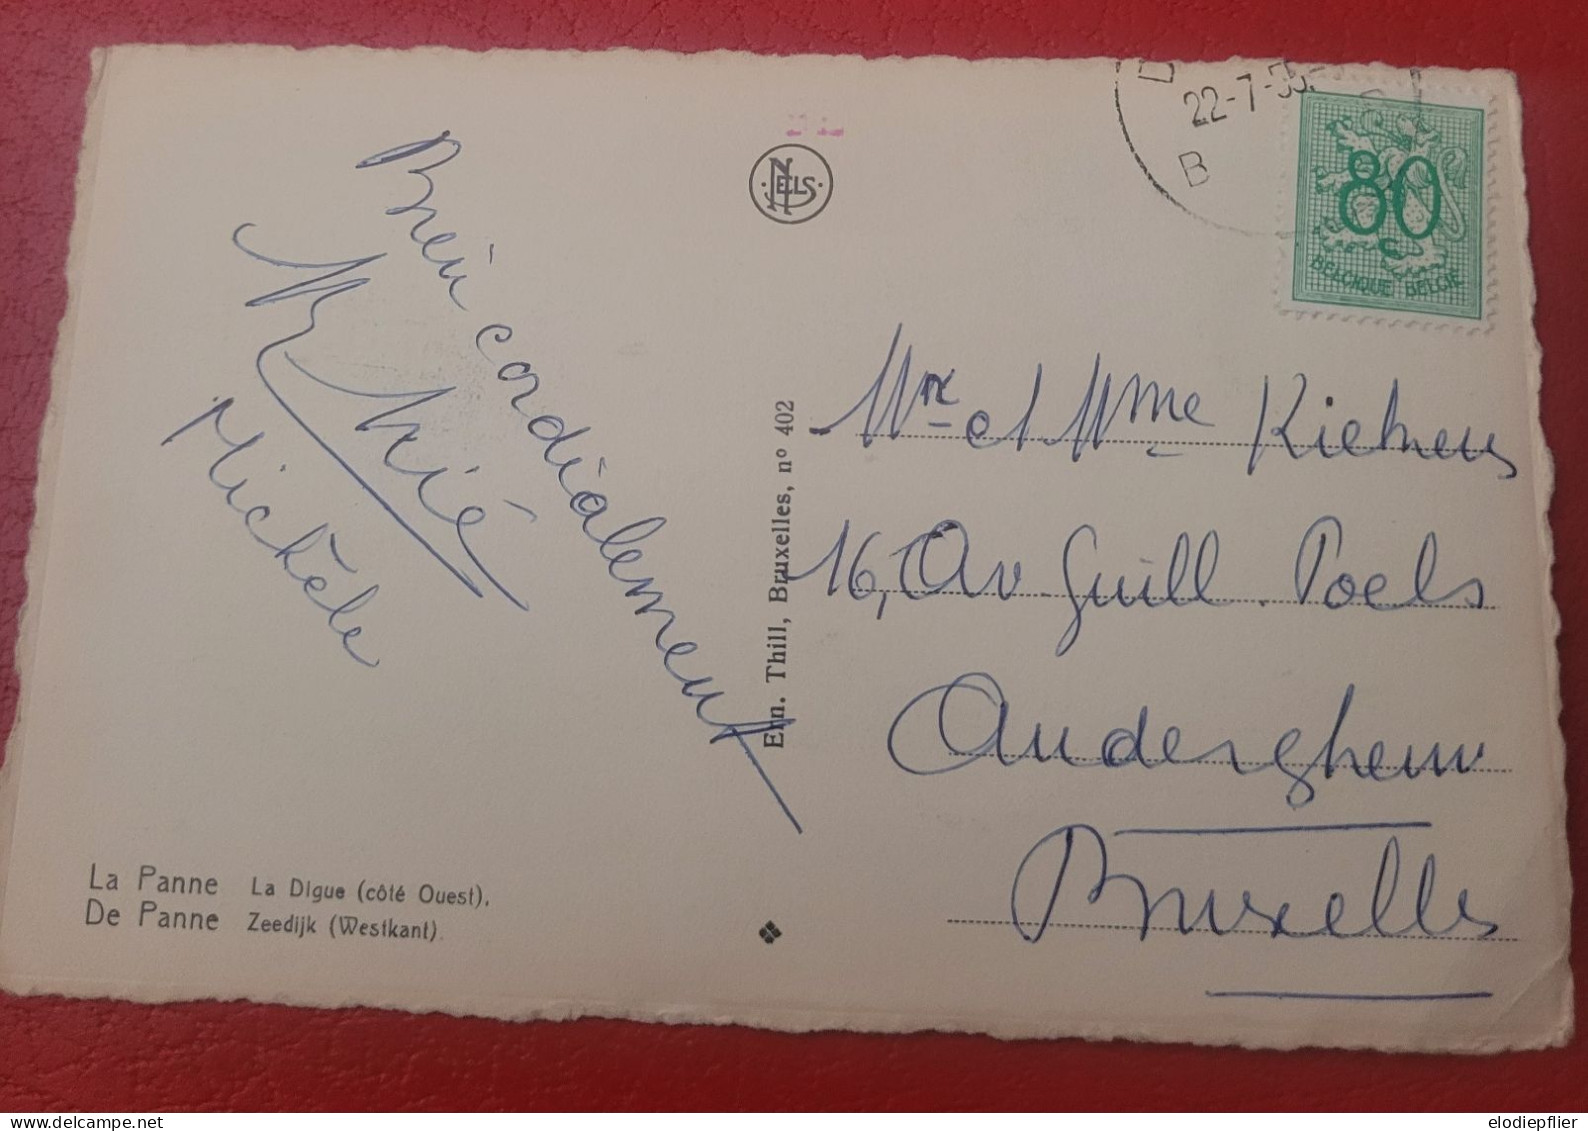 22-7-55
B
80
c
BELGIQUE BELGIË
NELS
Bien cordialement
Michèle
Ern. Thill, Bruxelles, nº 402
Mr et Mme Kiekens
16, Av Guill. Poels
Auderghem
Bruxelles
La Panne La Digue (côté Ouest).
De Panne Zeedijk (Westkant).
elodiepflier